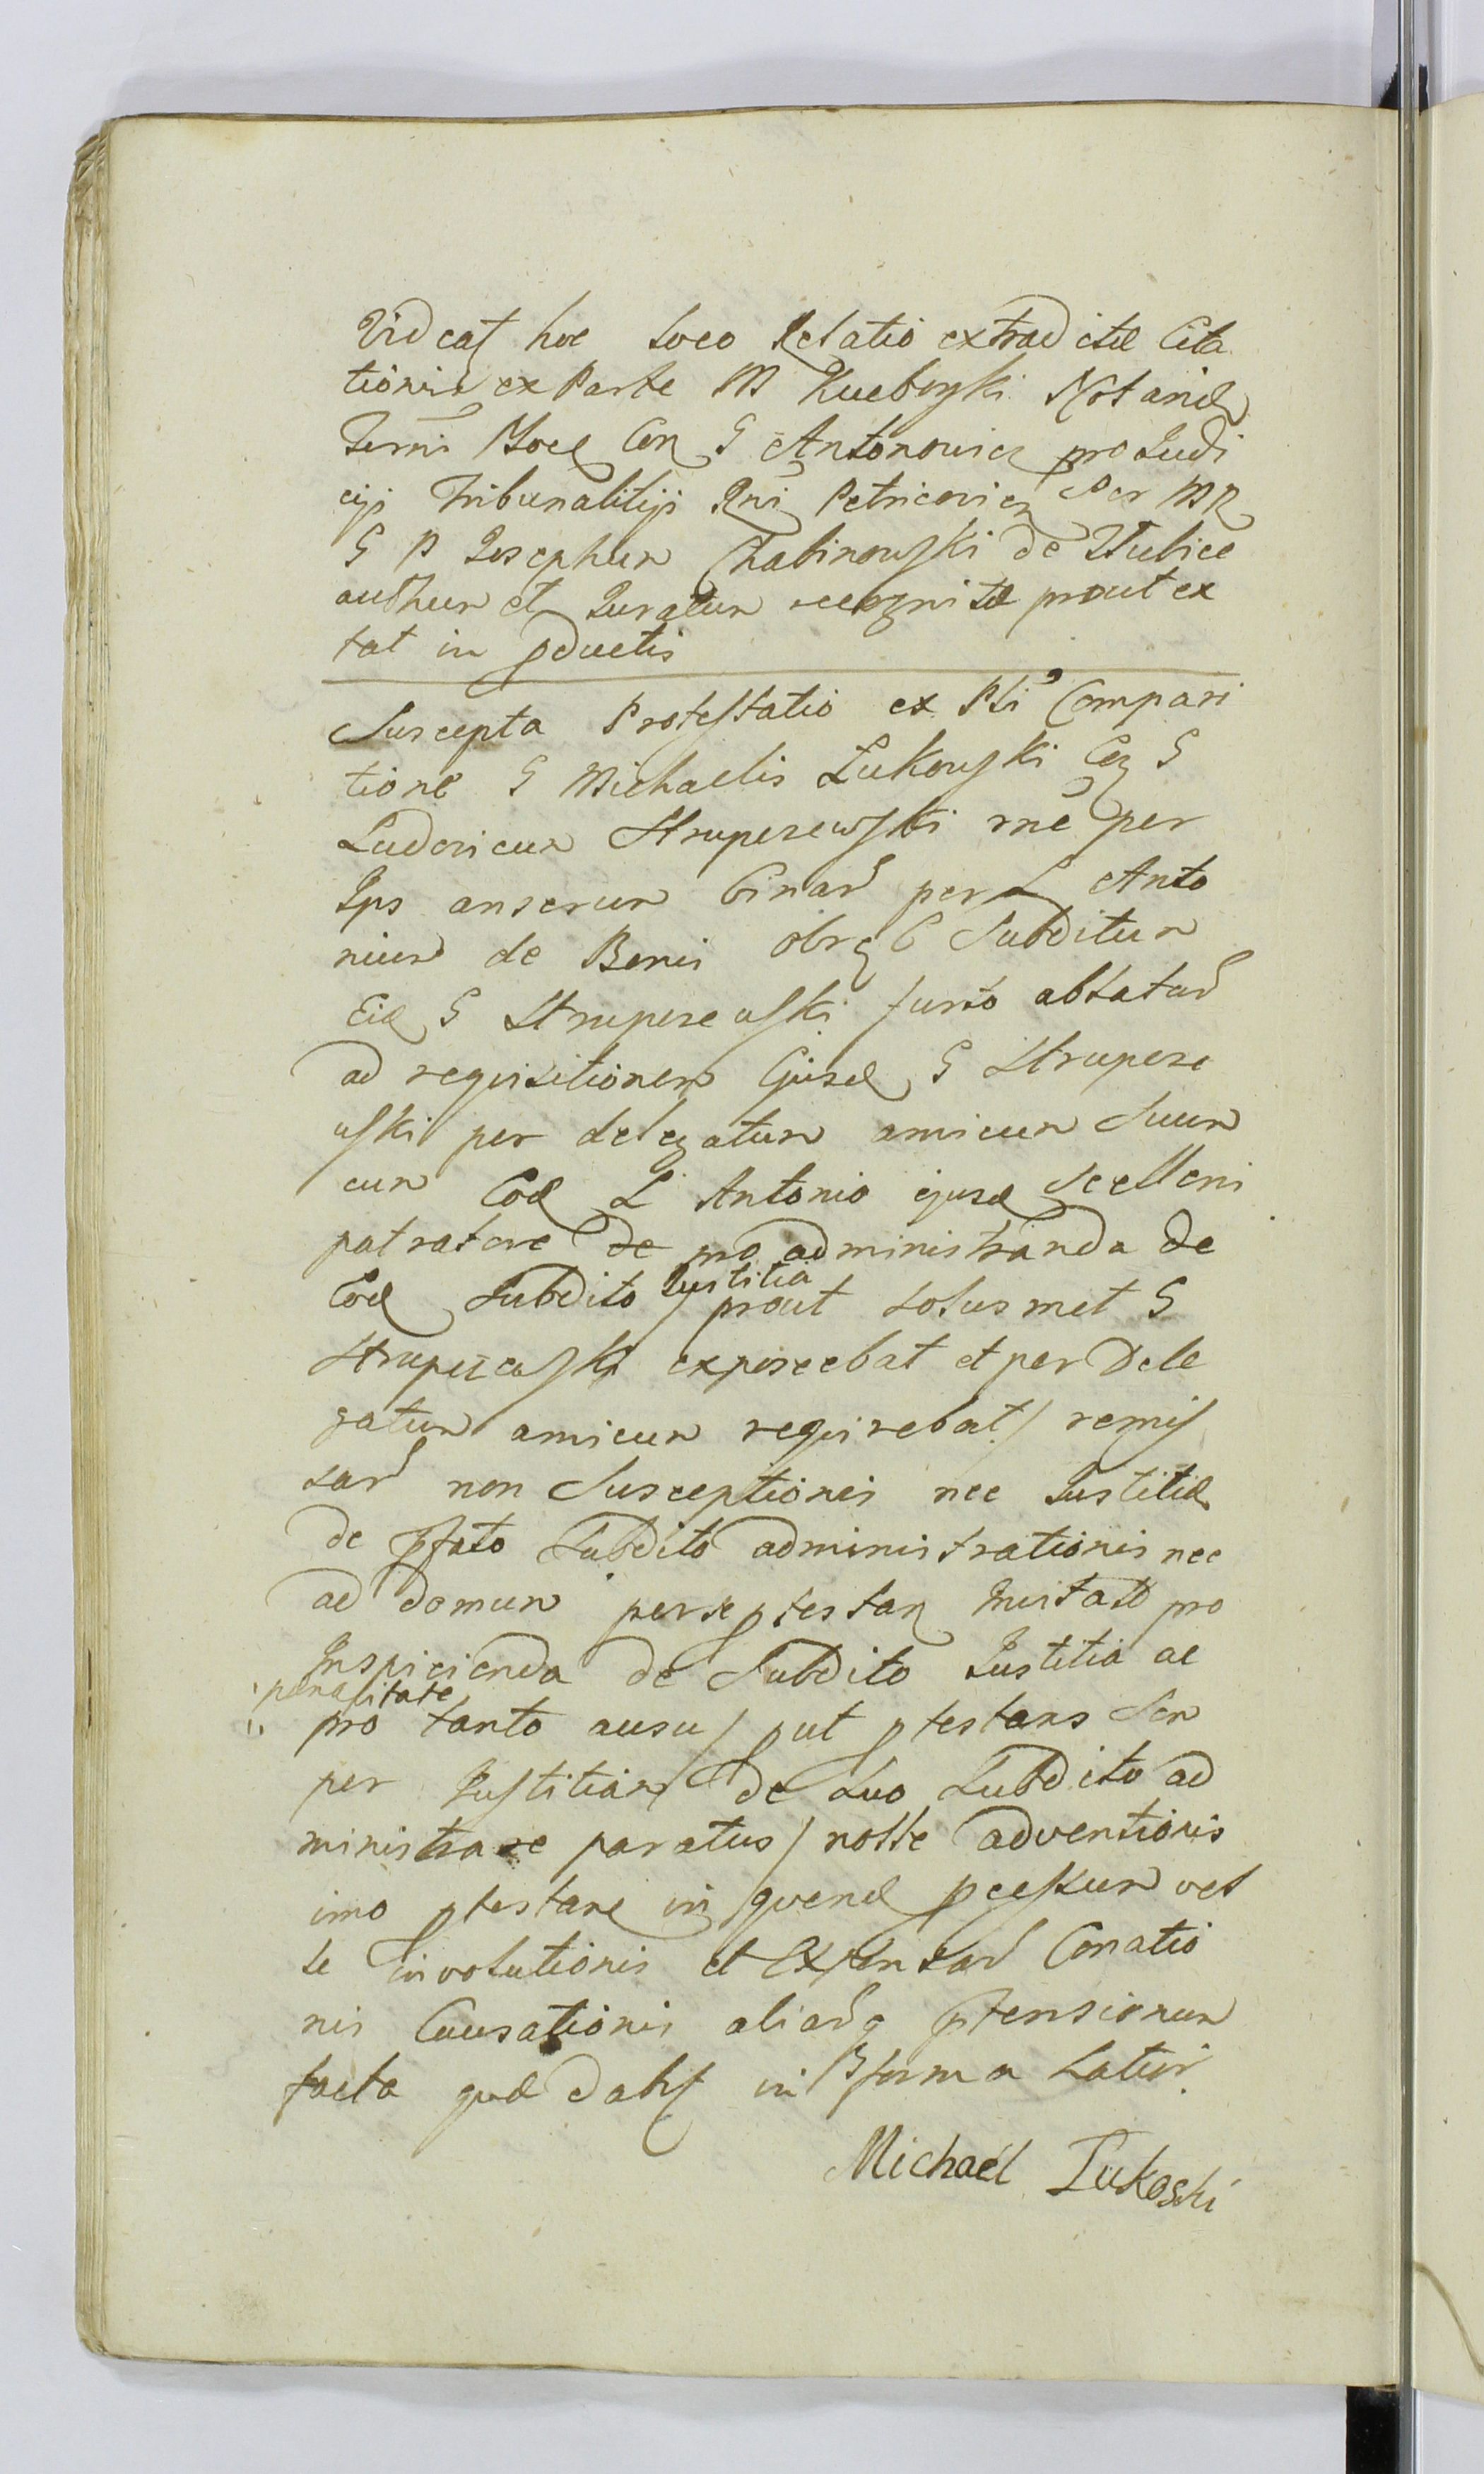 Videat hoc loco Relatio extraditæ Cita
tionis ex Parte M Kucborski Notarid
Terrni Con G Antonowicz pro Judi
cijs Tribunalitijs Petricovien Per MR
G P Josephum Chabinowski de Stubice
authum et Juratum recognitæ prout ex
tat in pductis
Suscepta Protestatio ex Pli Compari
tione G Michaelis Łukowski Con G
Ludovicum Strupczewski rne per
Ips anserum binar per L Anto
nium de Bonis Subditum
Eid G Strupczewski furto ablatar
ad requisitionem Ejusd G Strupcze
wski per delegatum amicum Suum
cum Eod L Antonio ejusd scelleris
patratore de pro administranda de
Eod Subdito Justitia / prout solusmet G
Strupczewski exposcebat et per Dele
gatum amicum requirebat / remis
sar non Susceptionis nec Justitiæ
de pfato Subdito administrationis nec
ad domum per se ptestan Invitato pro
Inspicienda de Subdito Justitia ac
pœnalitate
pro tanto ausu / put ptestans Sem
per Justitiam de Suo Subdito ad
ministrare paratus / nolle adventionis
imo ptestane in quend pcessum vel
le involutionis et Expensar Conatio
nis Causationis aliarq ptensionum
facta quæ dabs in forma latior
Michaël Łukoski